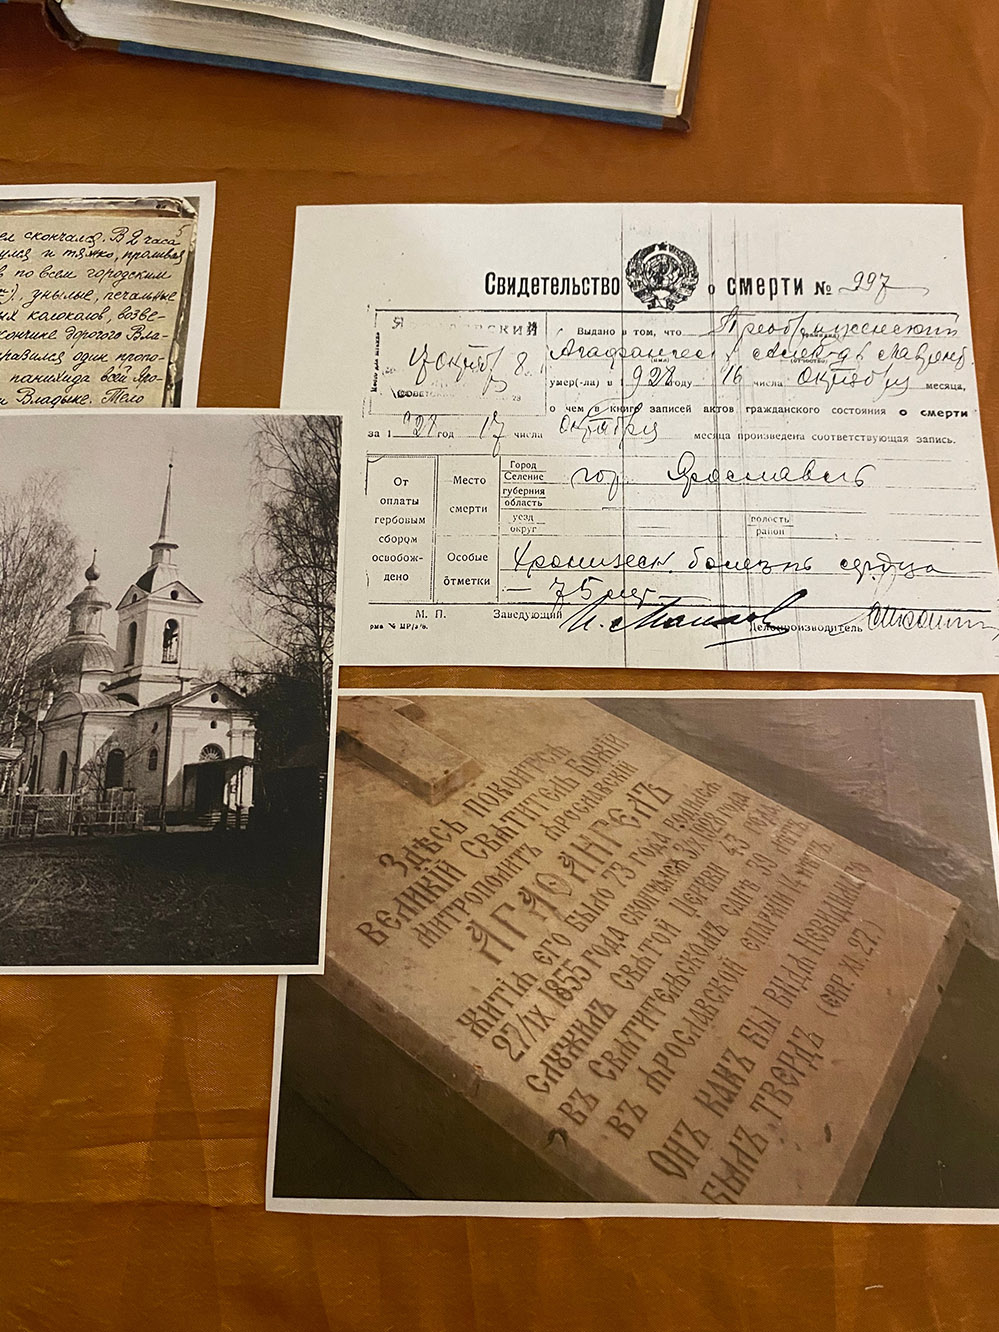 ел скончался. В 2 часа
по всем городским
унылые, печальные
колоколов, возве-
кончине дорогого Вла-
равился один прого-
панихида
Владыке. Тело
5
Свидетельство о смерти № 297
Выдано в том, что Преображенский
Агафангел
умер(-ла) в 1928 году 16 числа октября месяца,
о чем в книге записей актов гражданского состояния о смерти
за 1928 год 17 числа октября месяца произведена соответствующая запись.
От
оплаты
гербовым
сбором
освобож-
дено
Место
смерти
Город
Селение
губерния
область
гор. Ярославль
уезд
округ
волость
район
Особые
отметки
Хроническ. болезнь сердца
— 75 лет —
М. П. Заведующий
Делопроизводитель
Здѣсь покоится
великій Святитель Божій
Митрополитъ Ярославскій
Агаѳангелъ
Житія его было 73 года родился
27/IX 1855 года скончался 3/X 1928 года
Служилъ Святой Церкви 43 года
въ святительскомъ санѣ 39 лѣтъ
въ Ярославской епархіи 14 лѣтъ.
Онъ какъ бы видя Невидимаго
былъ твердъ (Евр. XI. 27.)